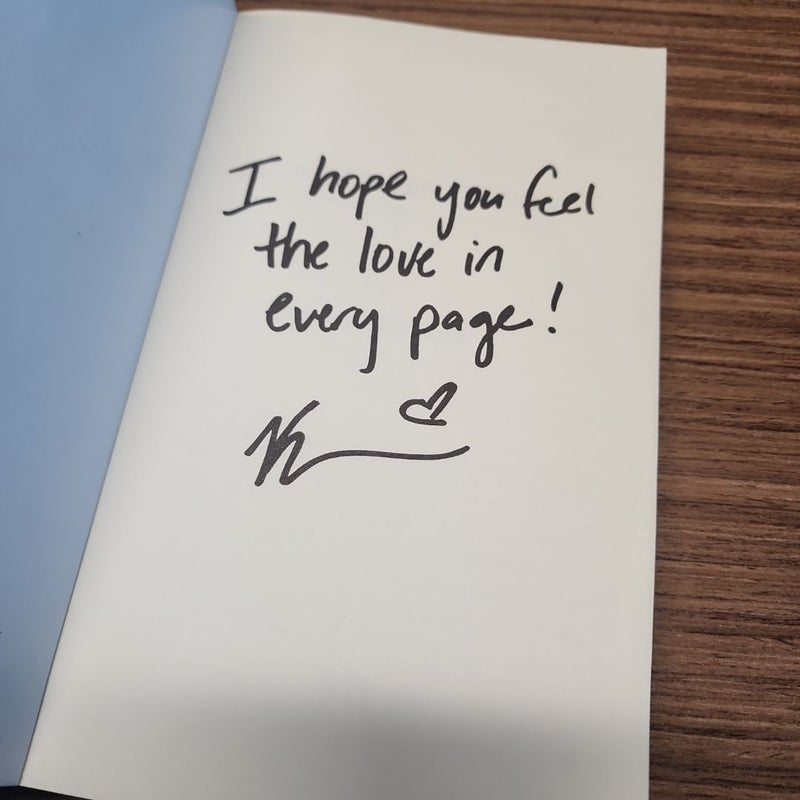 I hope you feel
the love in
every page!